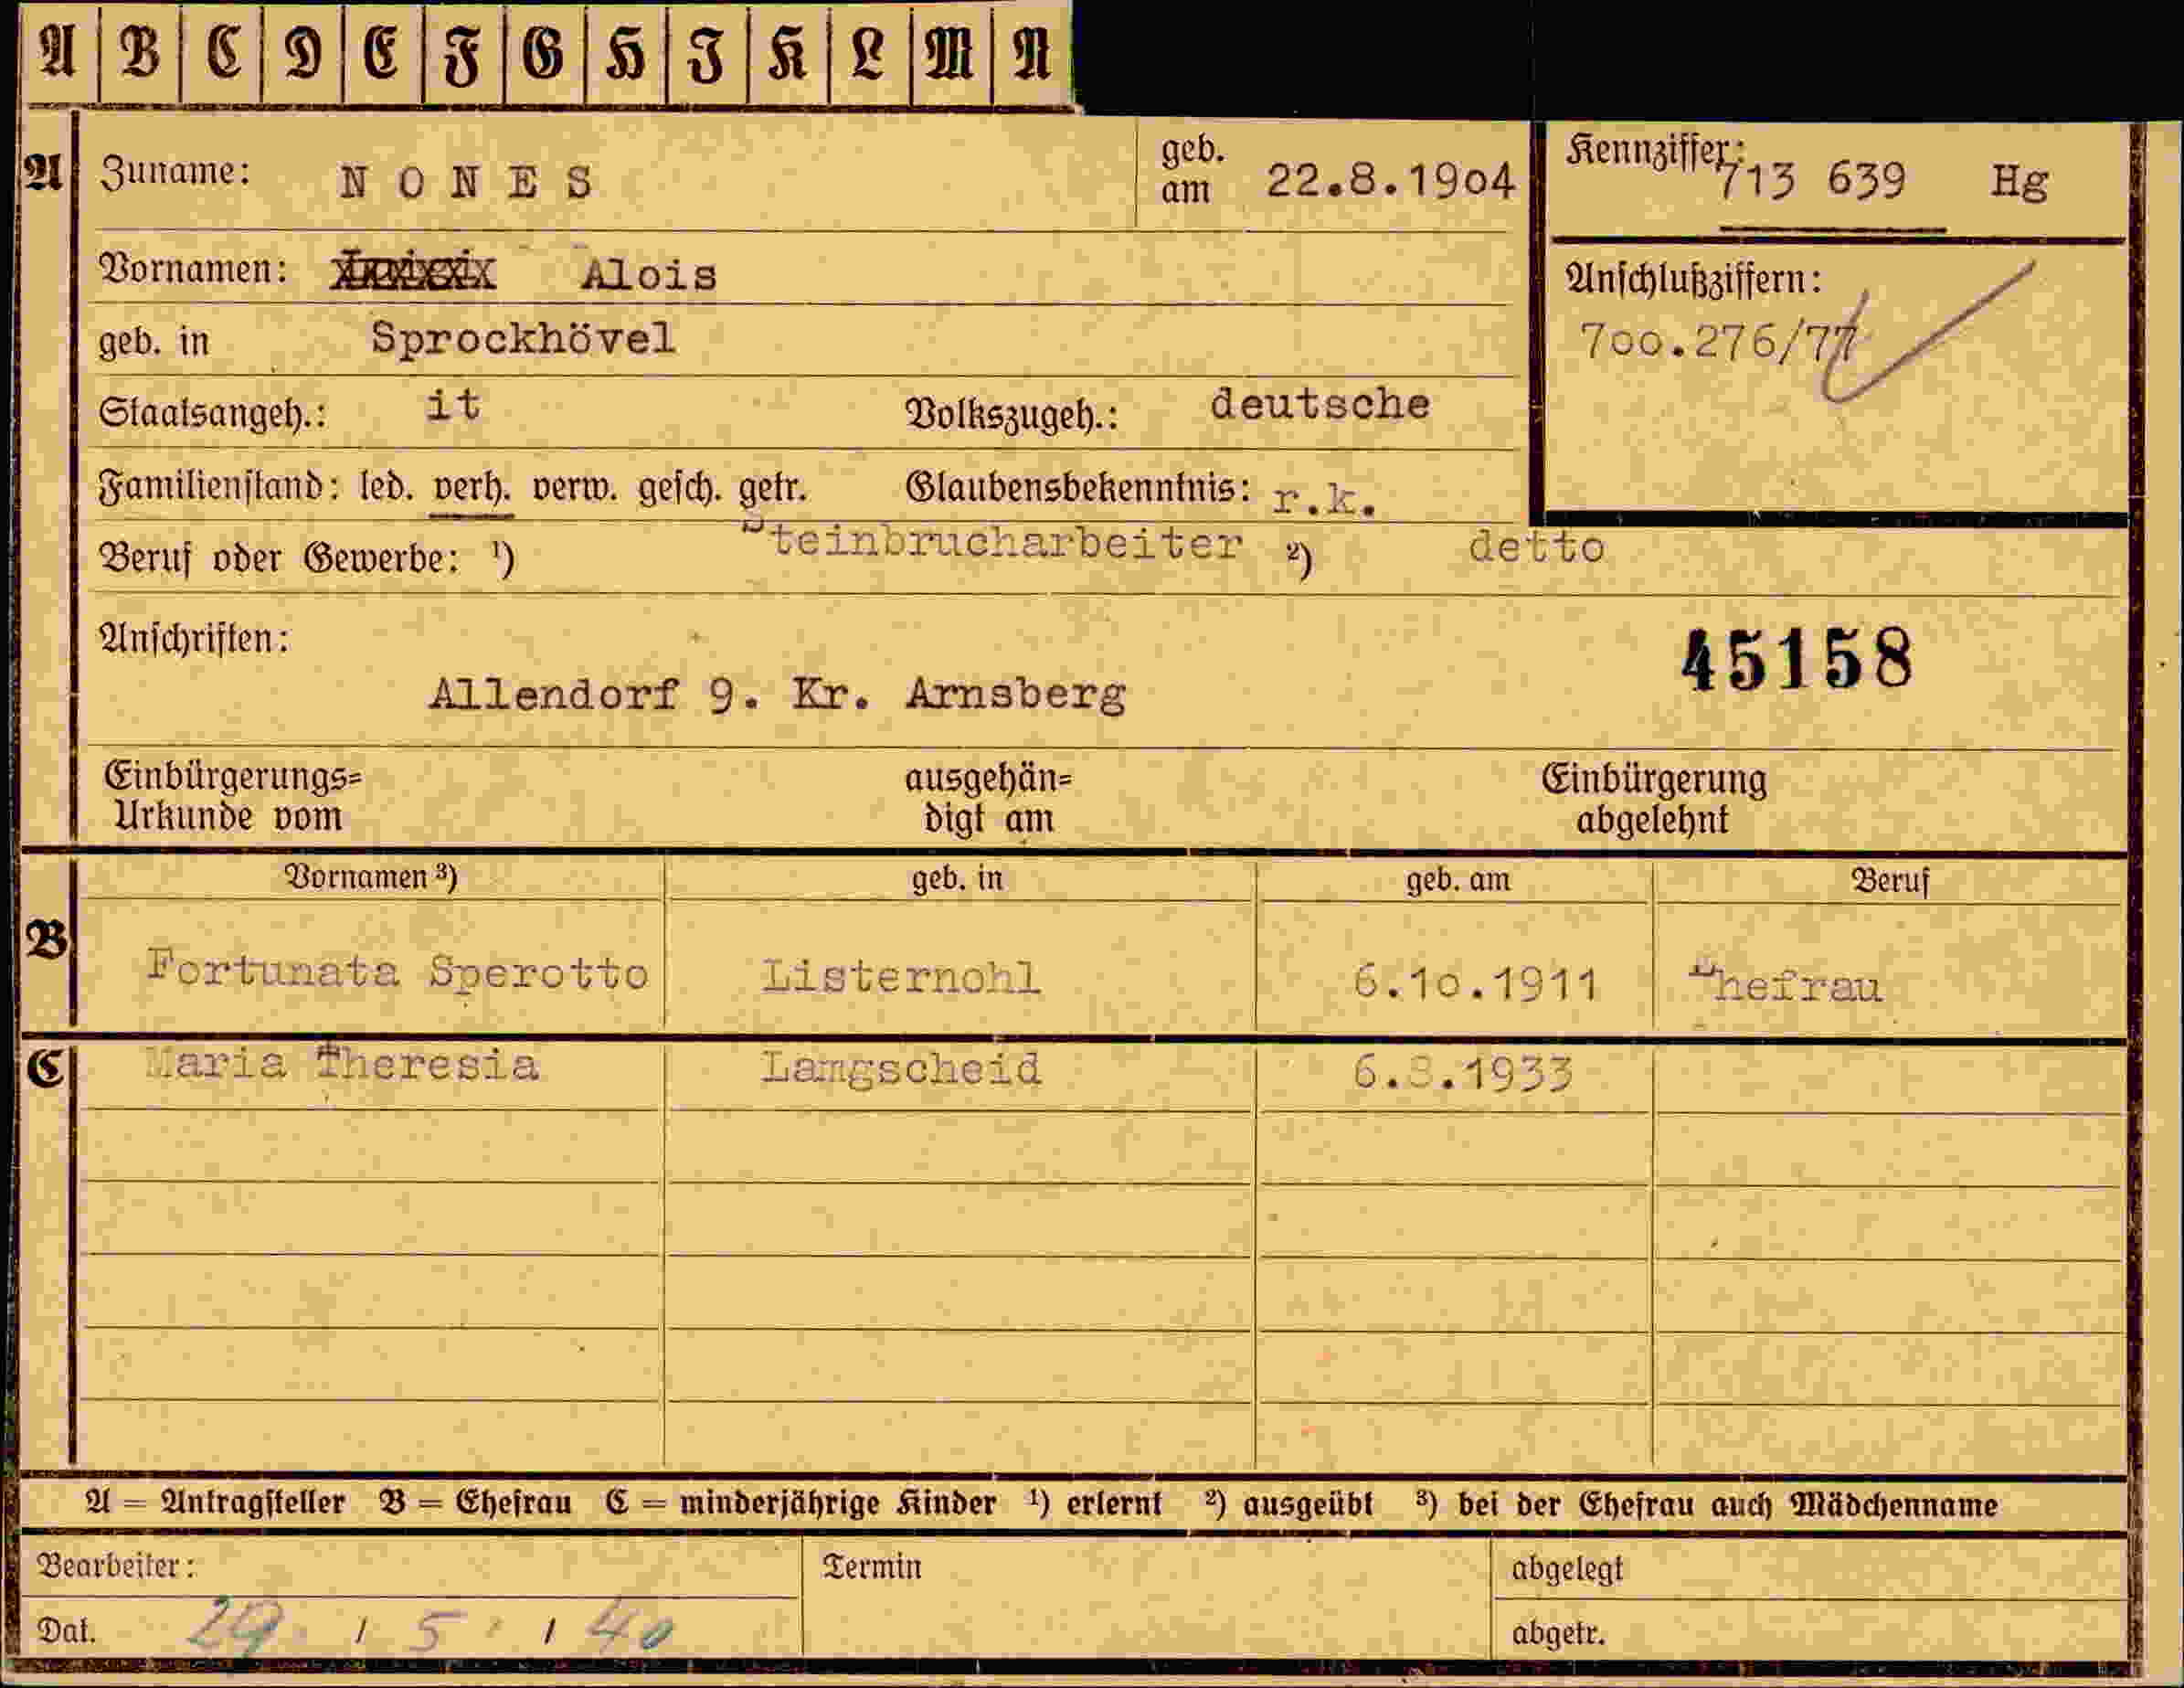 A B C D E F G H I K L M N
A Zuname: NONES geb. am 22.8.1904 Kennziffer: 713 639 Hg
Vornamen: Alois Anschlußziffern:
geb. in Sprockhövel 700.276/77
Staatsangeh.: it Volkszugeh.: deutsche
Familienstand: led. verh. verw. gesch. getr. Glaubensbekenntnis: r.k.
Beruf oder Gewerbe: ¹) Steinbrucharbeiter ²) detto
Anschriften: 45158
Allendorf 9. Kr. Arnsberg
Einbürgerungs= ausgehän= Einbürgerung
Urkunde vom digt am abgelehnt
Vornamen ³) geb. in geb. am Beruf
B Fortunata Sperotto Listernohl 6.10.1911 Ehefrau
C Maria Theresia Langscheid 6.8.1933
A = Antragsteller B = Ehefrau C = minderjährige Kinder ¹) erlernt ²) ausgeübt ³) bei der Ehefrau auch Mädchenname
Bearbeiter: Termin abgelegt
Dat. 29 / 5 / 40 abgetr.